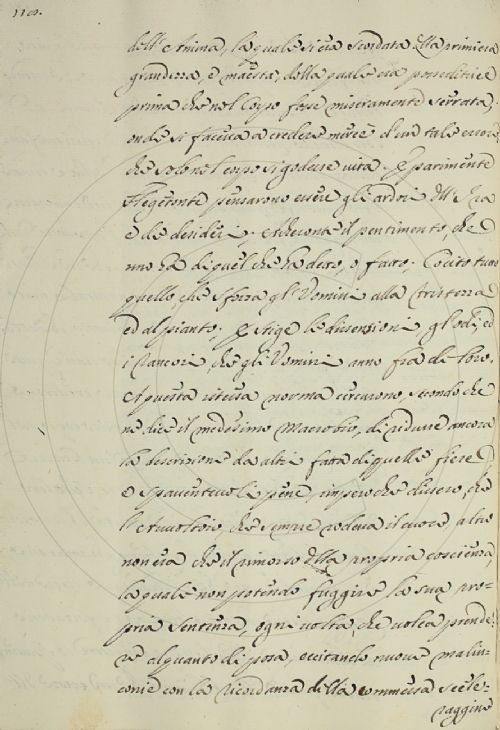 110.
dell'Anima, la quale si era scordata della primiera
grandezza, e maestà, della quale era posseditrice
prima che nel Corpo fosse miseramente serrata;
onde si faceva a credere mercè d'un tale errore,
che solo nel corpo si godesse vita. E parimente
Flegetonte pensarono essere gli ardori dell'Ira
e de desideri; Acheronte il pentimento, che
uno ha di quel che ha detto, o fatto; Cocito tutto
quello, che sforza gl'Uomini alla tristezza
ed al pianto; e Stige le dissensioni, gl'odi, ed
i rancori, che gli Uomini anno fra di loro.
A questa istessa norma cercarono, secondo che
ne dice il medesimo Macrobio, di ridurre ancora
la descrizione da altri fatta di quelle fiere
e spaventevoli pene, imperochè dissero, che
l'Avvoltoio che sempre rodeva il cuore altro
non era che il rimorso della propria coscienza,
la quale non potendo fuggire la sua pro-
pria sentenza, ogni volta, che voleva prende-
re alquanto di posa, eccitando nuove malin-
conie con la ricordanza della commessa scele-
raggine